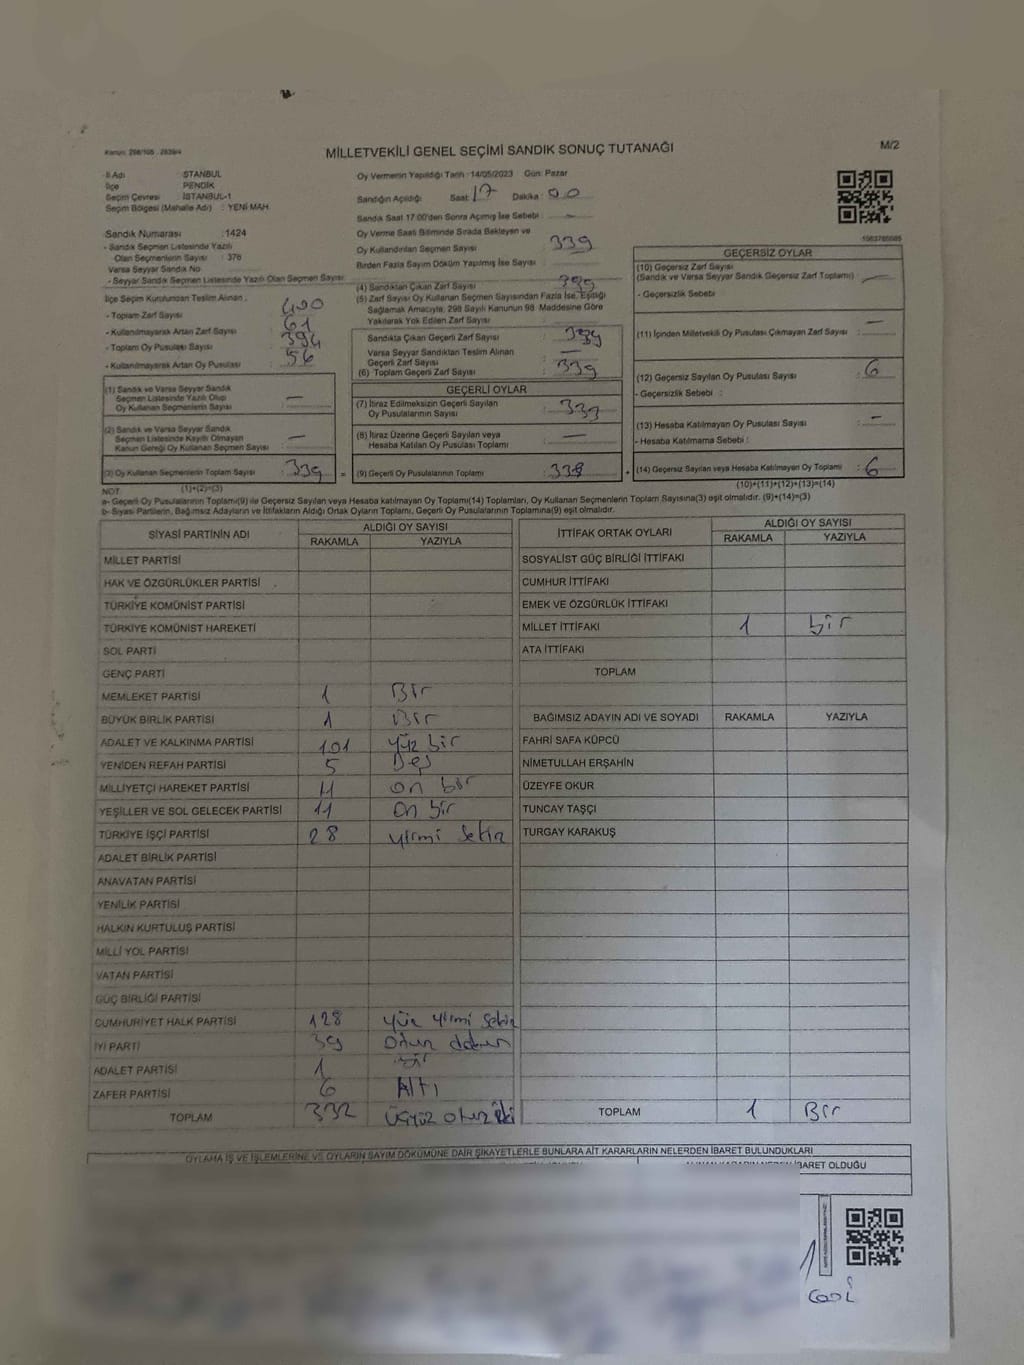 Kanun: 298/105 , 2839/4
MİLLETVEKİLİ GENEL SEÇİMİ SANDIK SONUÇ TUTANAĞI
M/2
İl Adı : İSTANBUL
İlçe : PENDİK
Seçim Çevresi : İSTANBUL-1
Seçim Bölgesi (Mahalle Adı) : YENİ MAH.
Sandık Numarası : 1424
- Sandık Seçmen Listesinde Yazılı
Olan Seçmenlerin Sayısı : 376
Varsa Seyyar Sandık No
- Seyyar Sandık Seçmen Listesinde Yazılı Olan Seçmen Sayısı:
İlçe Seçim Kurulundan Teslim Alınan ,
- Toplam Zarf Sayısı : 400
- Kullanılmayarak Artan Zarf Sayısı : 61
- Toplam Oy Pusulası Sayısı : 394
- Kullanılmayarak Artan Oy Pusulası : 56
(1) Sandık ve Varsa Seyyar Sandık
Seçmen Listesinde Yazılı Olup
Oy Kullanan Seçmenlerin Sayısı : —
(2) Sandık ve Varsa Seyyar Sandık
Seçmen Listesinde Kayıtlı Olmayan
Kanun Gereği Oy Kullanan Seçmen Sayısı : —
(3) Oy Kullanan Seçmenlerin Toplam Sayısı : 339
(1)+(2)=(3)
Oy Vermenin Yapıldığı Tarih :14/05/2023 Gün: Pazar
Sandığın Açıldığı: Saat: 17 Dakika : 00
Sandık Saat 17:00'den Sonra Açılmış İse Sebebi : —
Oy Verme Saati Bitiminde Sırada Bekleyen ve
Oy Kullandırılan Seçmen Sayısı : 339
Birden Fazla Sayım Döküm Yapılmış İse Sayısı :
(4) Sandıktan Çıkan Zarf Sayısı : 339
(5) Zarf Sayısı Oy Kullanan Seçmen Sayısından Fazla İse, Eşitliği
Sağlamak Amacıyla, 298 Sayılı Kanunun 98. Maddesine Göre
Yakılarak Yok Edilen Zarf Sayısı :
Sandıkta Çıkan Geçerli Zarf Sayısı : 339
Varsa Seyyar Sandıktan Teslim Alınan
Geçerli Zarf Sayısı : —
(6) Toplam Geçerli Zarf Sayısı : 339
GEÇERLİ OYLAR
(7) İtiraz Edilmeksizin Geçerli Sayılan
Oy Pusulalarının Sayısı : 333
(8) İtiraz Üzerine Geçerli Sayılan veya
Hesaba Katılan Oy Pusulası Toplamı : —
= (9) Geçerli Oy Pusulalarının Toplamı : 333
GEÇERSİZ OYLAR
(10) Geçersiz Zarf Sayısı
(Sandık ve Varsa Seyyar Sandık Geçersiz Zarf Toplamı) : —
- Geçersizlik Sebebi :
(11) İçinden Milletvekili Oy Pusulası Çıkmayan Zarf Sayısı : —
(12) Geçersiz Sayılan Oy Pusulası Sayısı : 6
- Geçersizlik Sebebi :
(13) Hesaba Katılmayan Oy Pusulası Sayısı : —
- Hesaba Katılmama Sebebi :
+ (14) Geçersiz Sayılan veya Hesaba Katılmayan Oy Toplamı : 6
(10)+(11)+(12)+(13)=(14)
NOT
a- Geçerli Oy Pusulalarının Toplamı(9) ile Geçersiz Sayılan veya Hesaba katılmayan Oy Toplamı(14) Toplamları, Oy Kullanan Seçmenlerin Toplam Sayısına(3) eşit olmalıdır. (9)+(14)=(3)
b- Siyasi Partilerin, Bağımsız Adayların ve İttifakların Aldığı Ortak Oyların Toplamı, Geçerli Oy Pusulalarının Toplamına(9) eşit olmalıdır.
SİYASİ PARTİNİN ADI ALDIĞI OY SAYISI
RAKAMLA YAZIYLA
MİLLET PARTİSİ
HAK VE ÖZGÜRLÜKLER PARTİSİ
TÜRKİYE KOMÜNİST PARTİSİ
TÜRKİYE KOMÜNİST HAREKETİ
SOL PARTİ
GENÇ PARTİ
MEMLEKET PARTİSİ 1 Bir
BÜYÜK BİRLİK PARTİSİ 1 Bir
ADALET VE KALKINMA PARTİSİ 101 yüz bir
YENİDEN REFAH PARTİSİ 5 Beş
MİLLİYETÇİ HAREKET PARTİSİ 11 on bir
YEŞİLLER VE SOL GELECEK PARTİSİ 11 on bir
TÜRKİYE İŞÇİ PARTİSİ 28 yirmi sekiz
ADALET BİRLİK PARTİSİ
ANAVATAN PARTİSİ
YENİLİK PARTİSİ
HALKIN KURTULUŞ PARTİSİ
MİLLİ YOL PARTİSİ
VATAN PARTİSİ
GÜÇ BİRLİĞİ PARTİSİ
CUMHURİYET HALK PARTİSİ 128 yüz yirmi sekiz
İYİ PARTİ 39 Otuz dokuz
ADALET PARTİSİ 1 bir
ZAFER PARTİSİ 6 Altı
TOPLAM 332 üçyüz otuz iki
İTTİFAK ORTAK OYLARI ALDIĞI OY SAYISI
RAKAMLA YAZIYLA
SOSYALİST GÜÇ BİRLİĞİ İTTİFAKI
CUMHUR İTTİFAKI
EMEK VE ÖZGÜRLÜK İTTİFAKI
MİLLET İTTİFAKI 1 bir
ATA İTTİFAKI
TOPLAM
BAĞIMSIZ ADAYIN ADI VE SOYADI RAKAMLA YAZIYLA
FAHRİ SAFA KÜPCÜ
NİMETULLAH ERŞAHİN
ÜZEYFE OKUR
TUNCAY TAŞÇI
TURGAY KARAKUŞ
TOPLAM 1 Bir
OYLAMA İŞ VE İŞLEMLERİNE VE OYLARIN SAYIM DÖKÜMÜNE DAİR ŞİKAYETLERLE BUNLARA AİT KARARLARIN NELERDEN İBARET BULUNDUKLARI
İBARET OLDUĞU